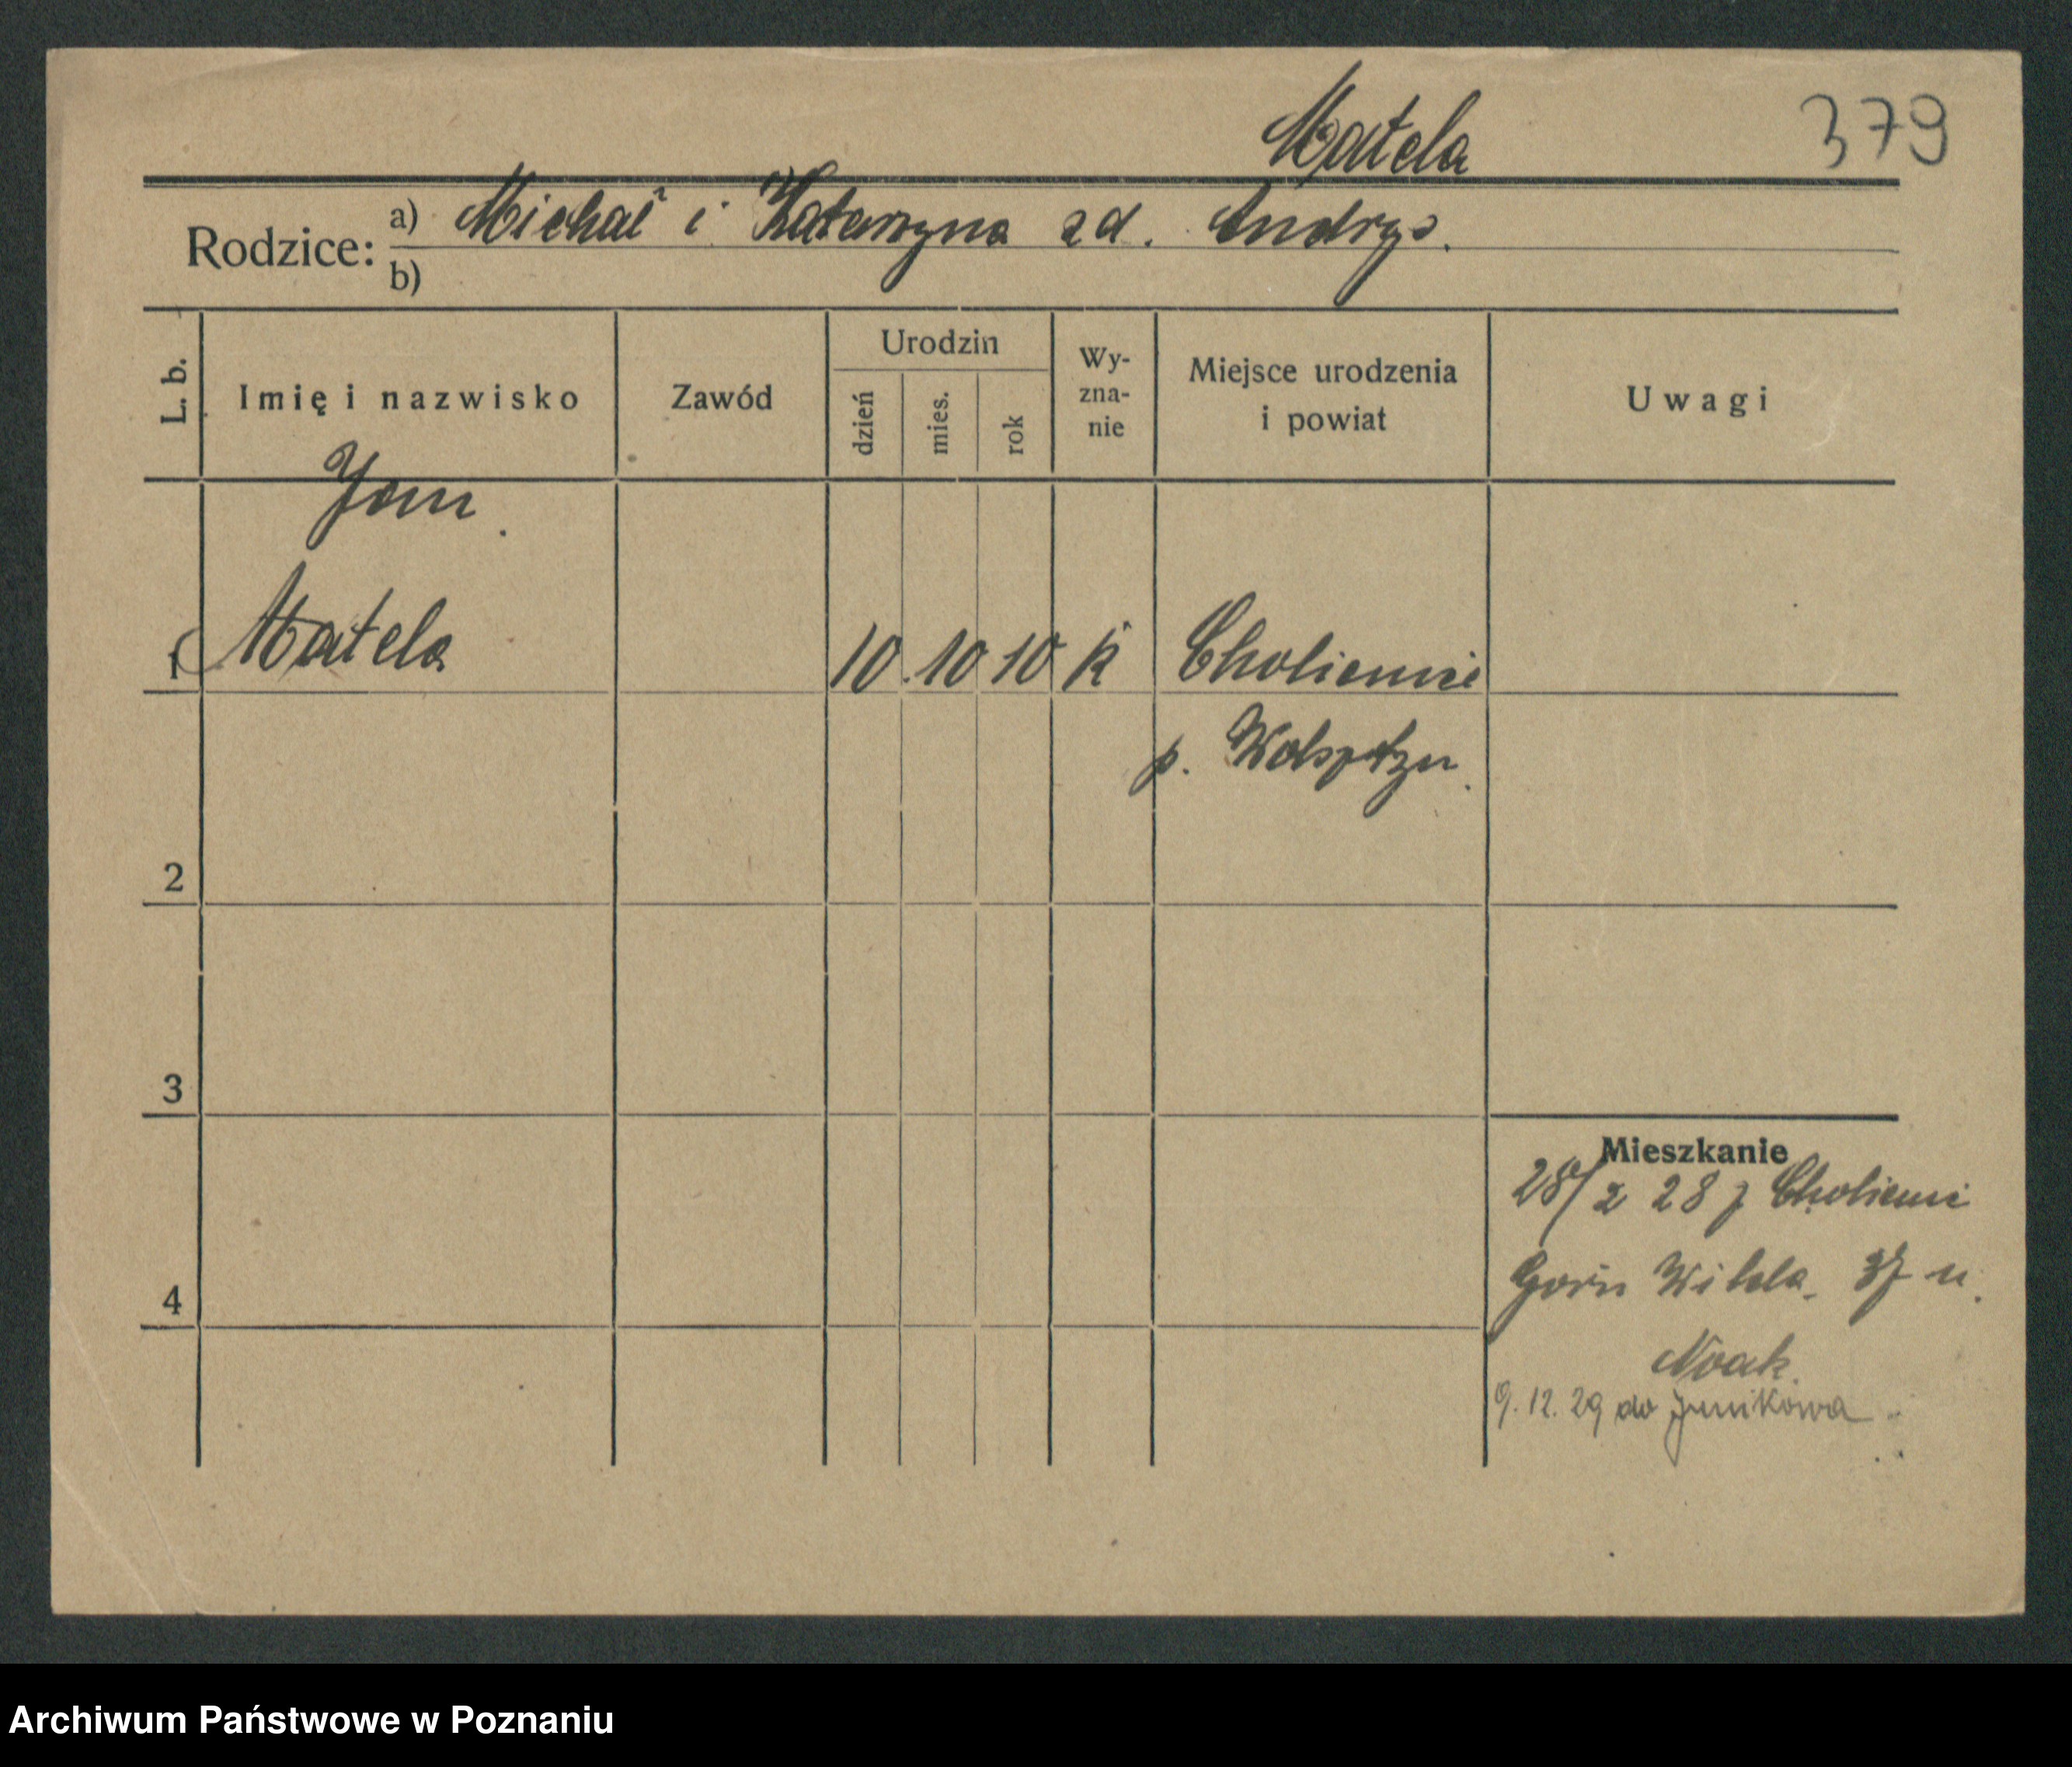 Matela 379
Rodzice: a) Michał i Katarzyna zd. Andrys.
b)
L. b. Imię i nazwisko Zawód Urodzin dzień mies. rok Wy-zna-nie Miejsce urodzenia i powiat Uwagi
Jan
1 Matela 10. 10 10 k Choliemie
p. Wolsztyn.
2
3
Mieszkanie
28/2 28 z Choliemi
4
Górn Wilda u.
Noak.
9. 12. 29 do Junikowa
Archiwum Państwowe w Poznaniu